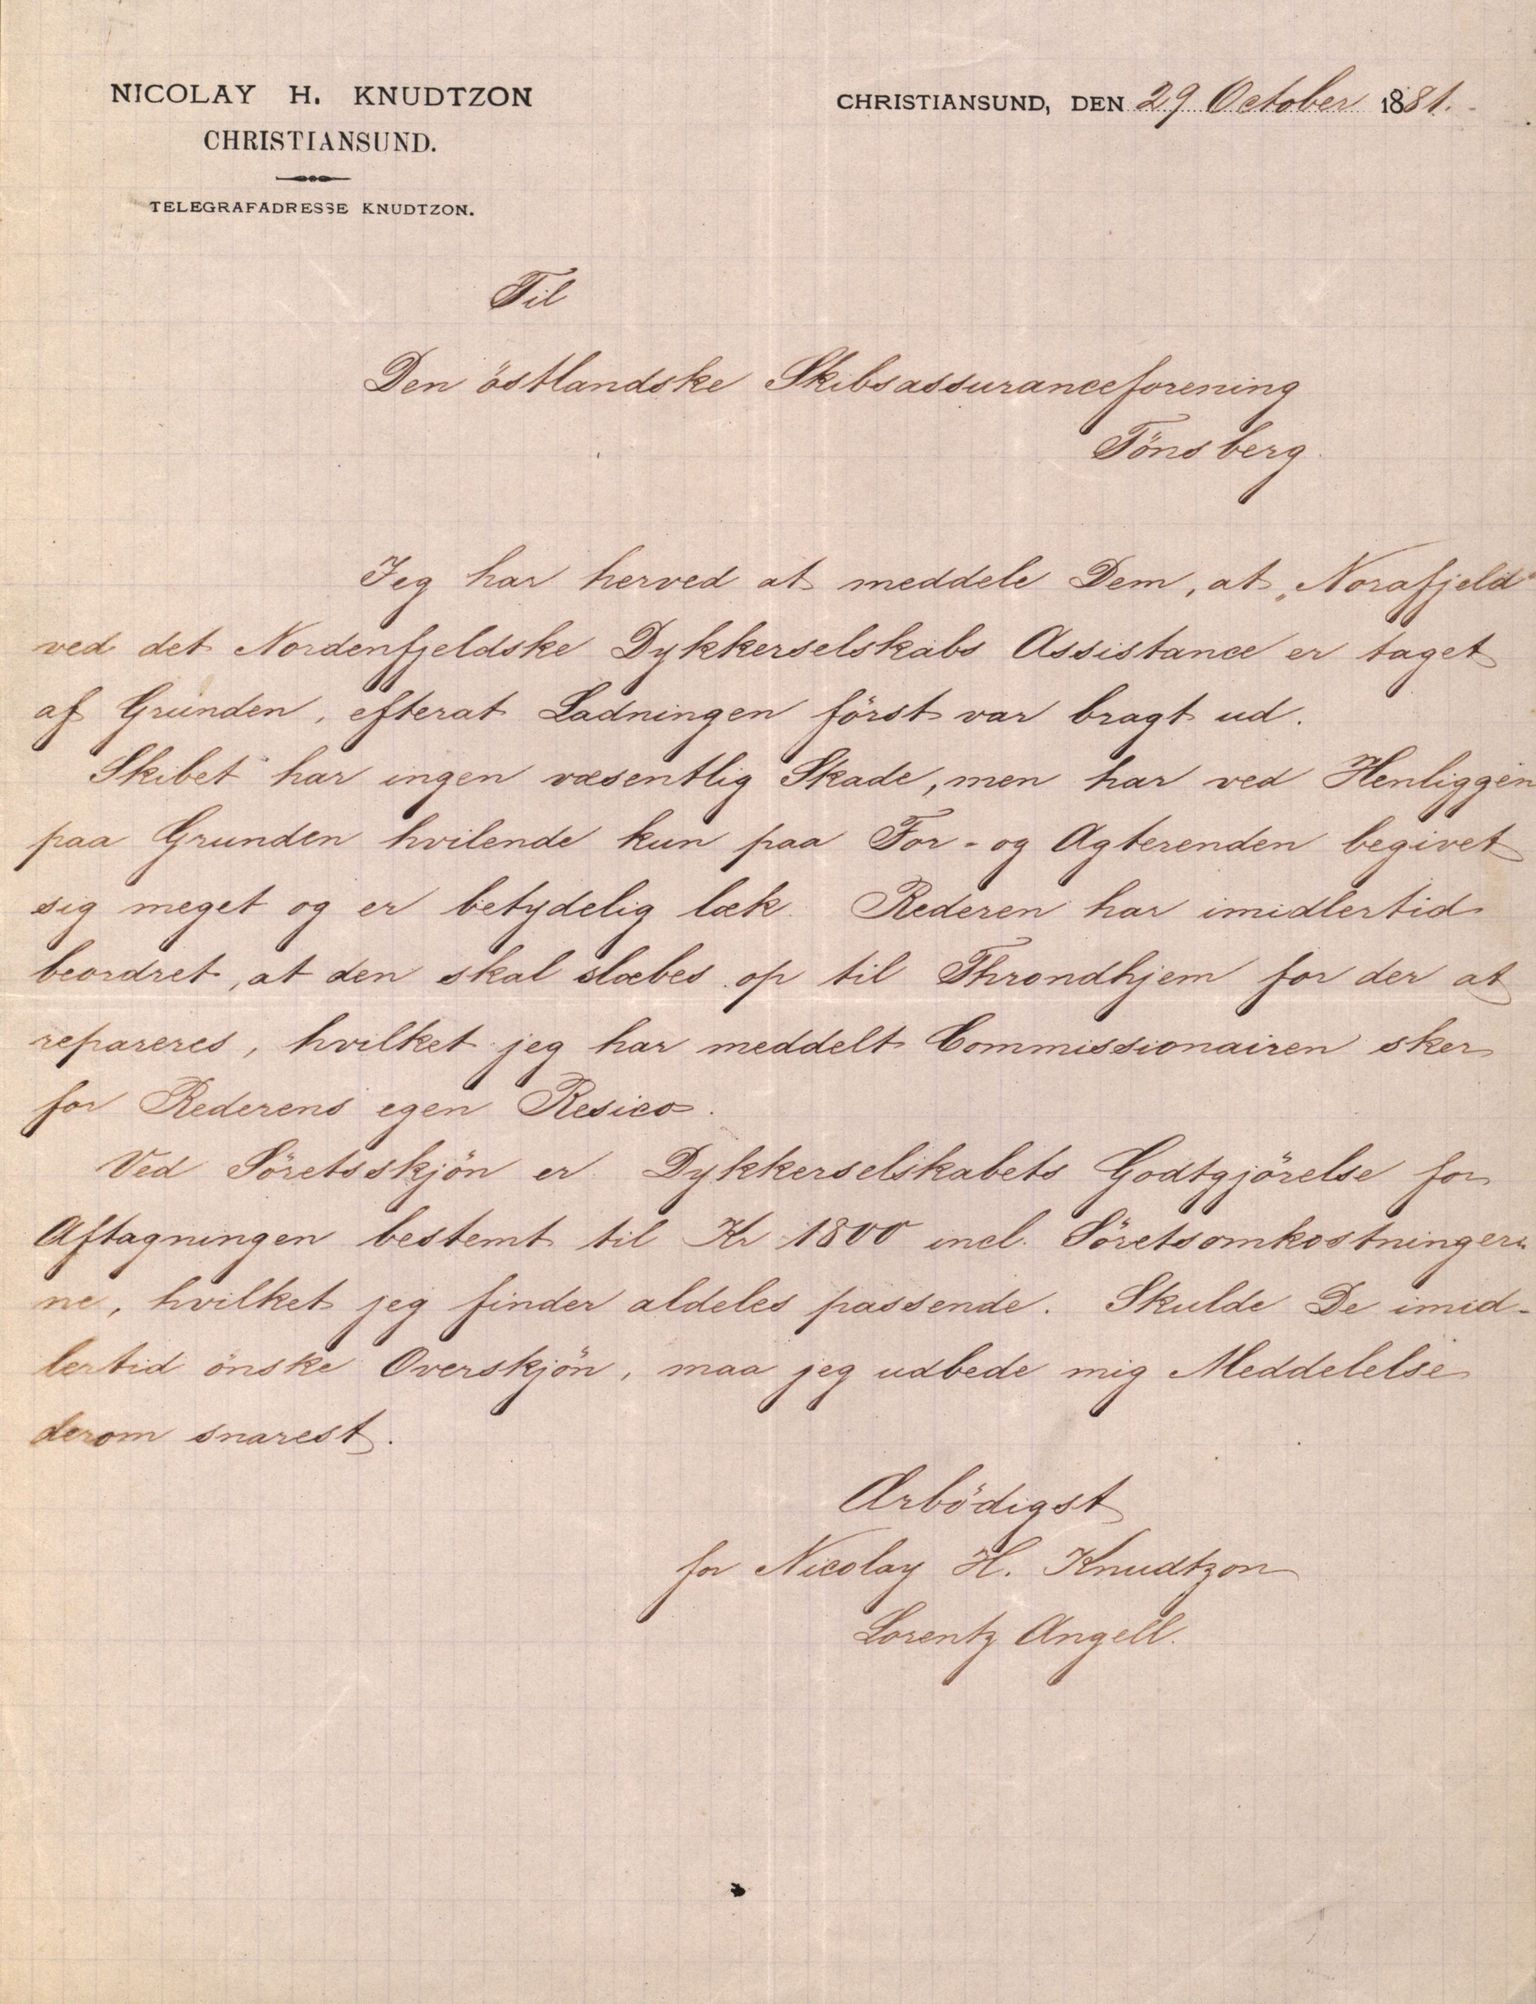 NICOLAY H. KNUDTZON
CHRISTIANSUND.
TELEGRAFADRESSE KNUDTZON.
CHRISTIANSUND, DEN 29 October 1881.
Til
Den östlandske Skibsassuranceforening
Tönsberg.
Jeg har herved at meddele Dem, at „Norafjeld"
ved det Nordenfjeldske Dykkerselskabs Assistance er taget
af Grunden, efterat Ladningen först var bragt ud.
Skibet har ingen væsentlig Skade, men har ved Henliggen
paa Grunden hvilende kun paa For- og Agterenden begivet
sig meget og er betydelig læk. Rederen har imidlertid
beordret, at den skal slæbes op til Throndhjem for der at
repareres, hvilket jeg har meddelt Commissionairen sker
for Rederens egen Resico.
Ved Söretsskjön er Dykkerselskabets Godtgjörelse for
Aftagningen bestemt til Kr 1800 incl. Söretsomkostninger
ne, hvilket jeg finder aldeles passende. Skulde De imid-
lertid önske Overskjön, maa jeg udbede mig Meddelelse
derom snarest.
Ærbödigst
for Nicolay H. Knudtzon
Lorentz Angell.